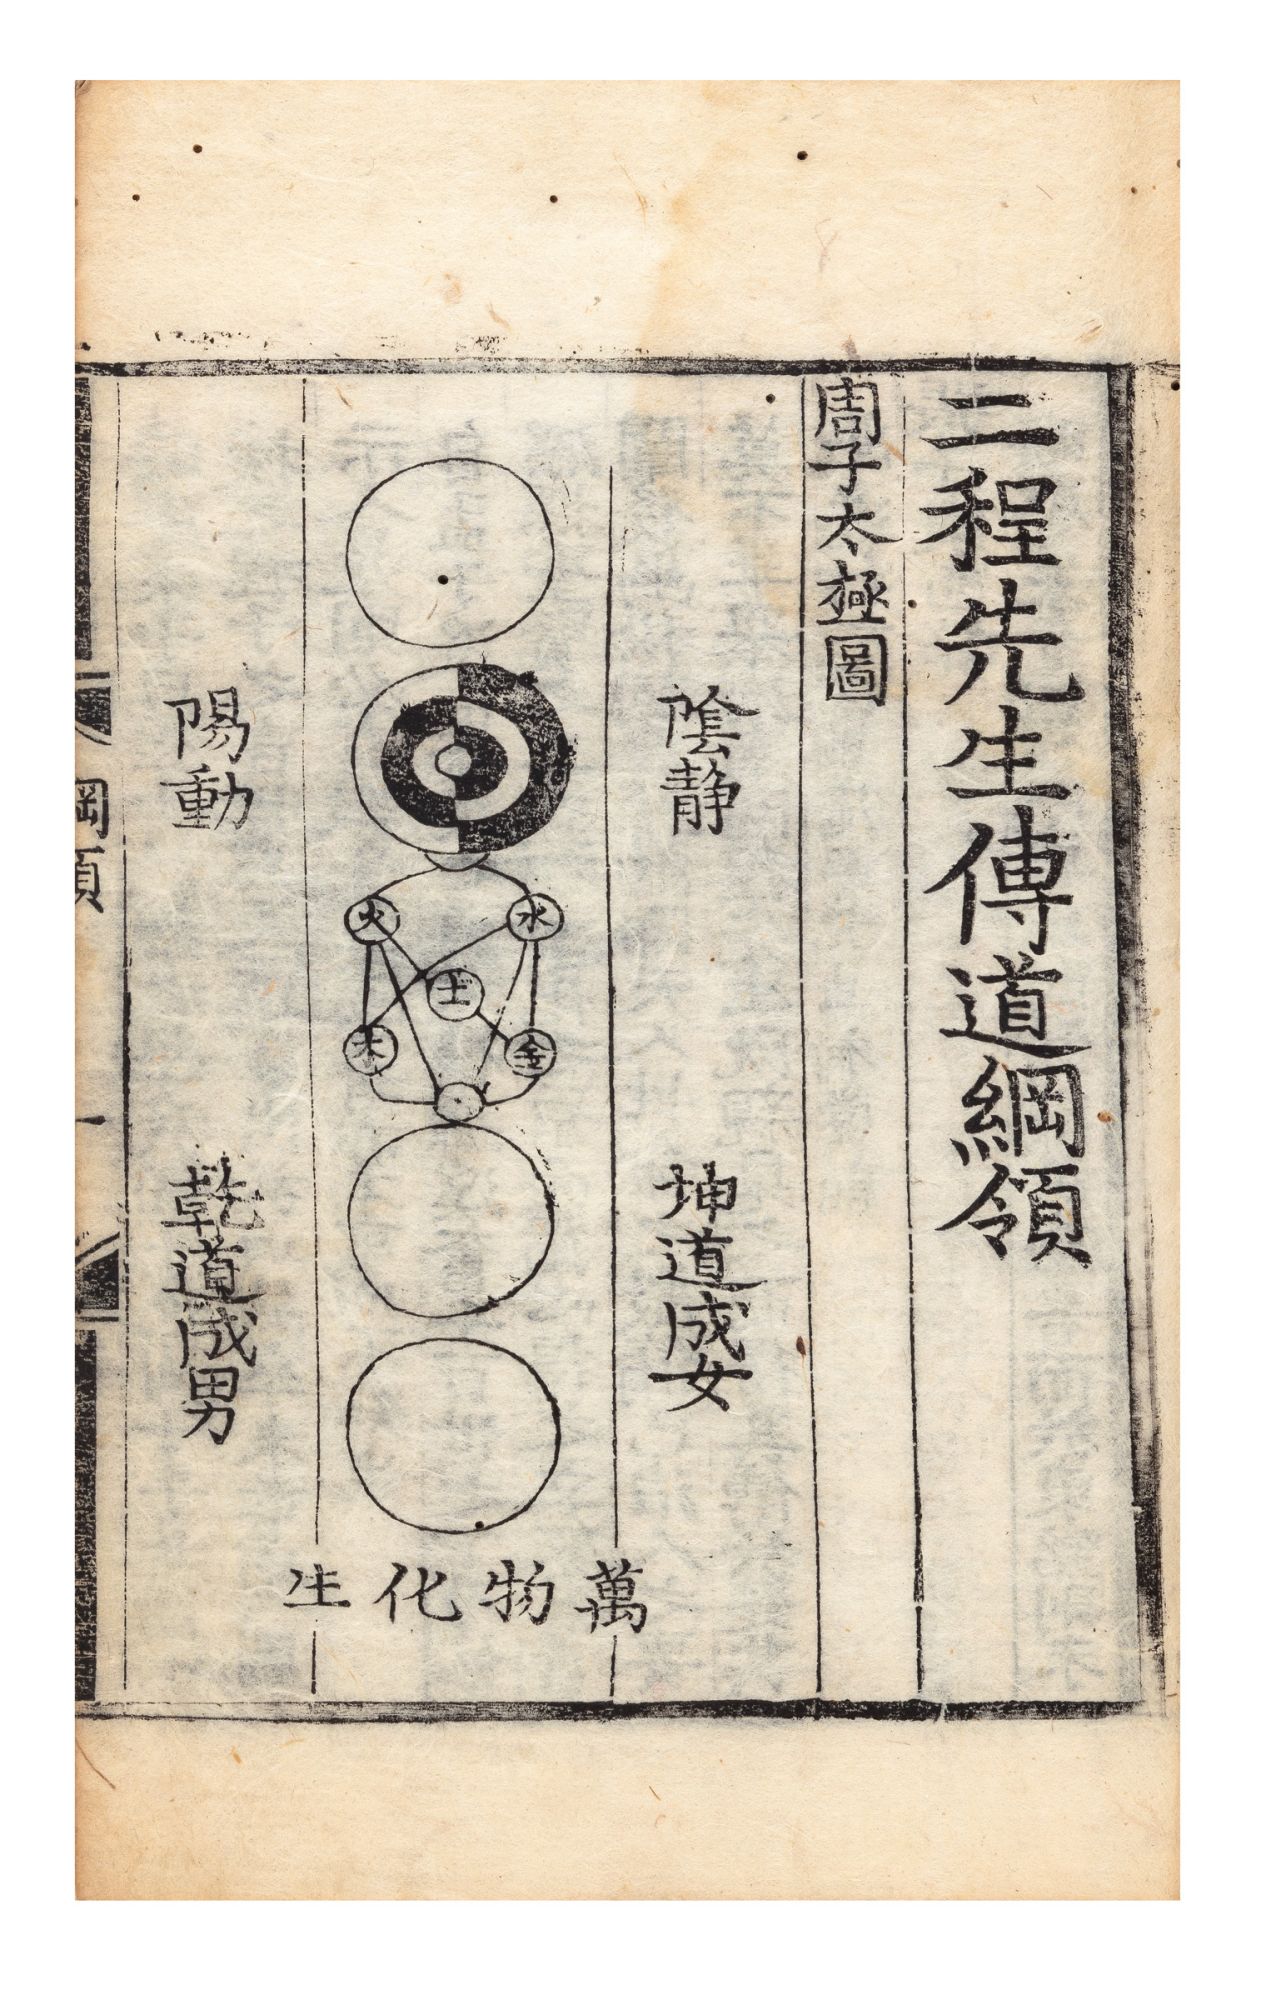 二程先生傳道綱領
周子太極圖
陰静
坤道成女
火
水
土
木
金
萬物化生
陽動
乾道成男
綱領
一